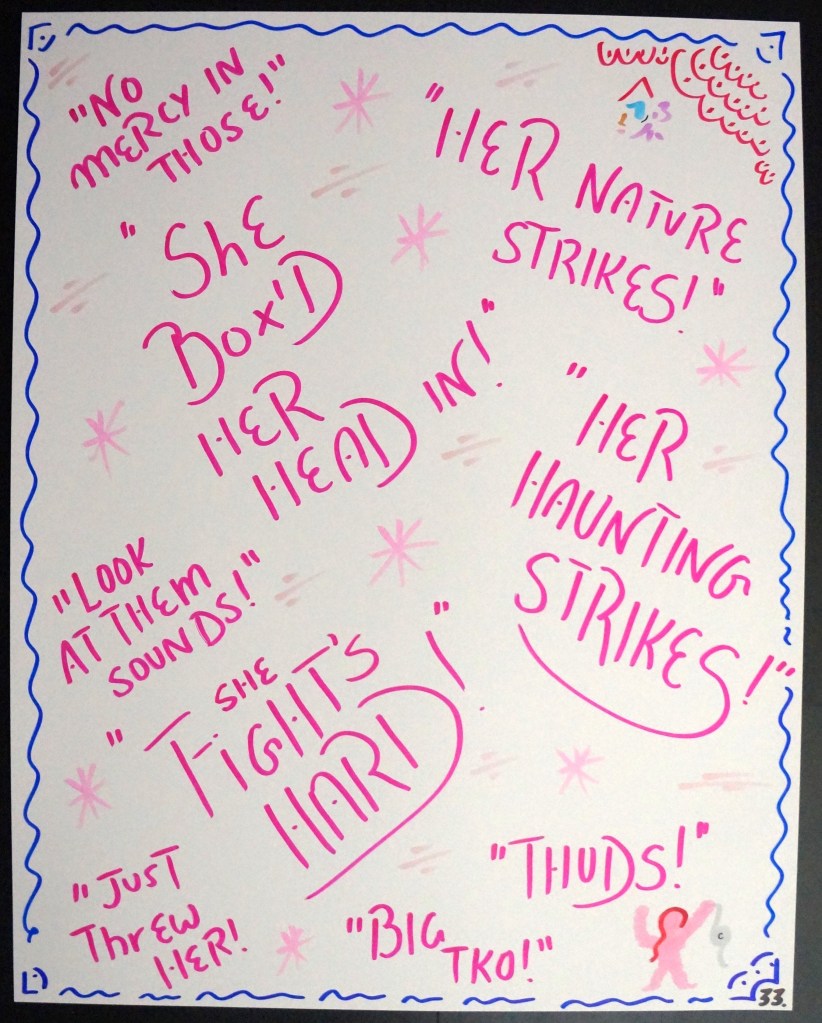 "NO
MERCY IN
THOSE!"
"HER NATURE
STRIKES!"
"SHE
BOX'D
HER
HEAD IN!"
"HER
HAUNTING
STRIKES!"
"LOOK
AT THEM
SOUNDS!"
"SHE
FIGHT'S
HARD!"
"THUDS!"
"JUST
THREW
HER!
"BIG
TKO!"
C
33.